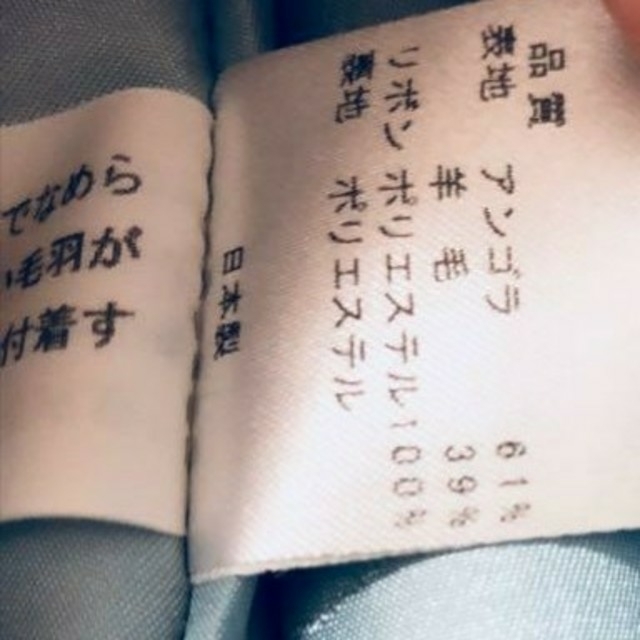 品質
表地 アンゴラ 61%
羊毛 39%
リボン ポリエステル100%
裏地 ポリエステル
日本製
でなめら
毛羽が
付着す